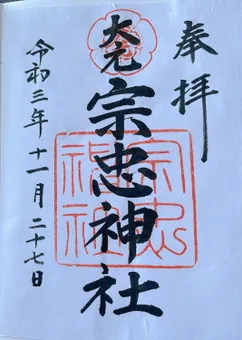 奉拝
大元
宗忠神社
令和三年十一月二十七日
宗忠
神社